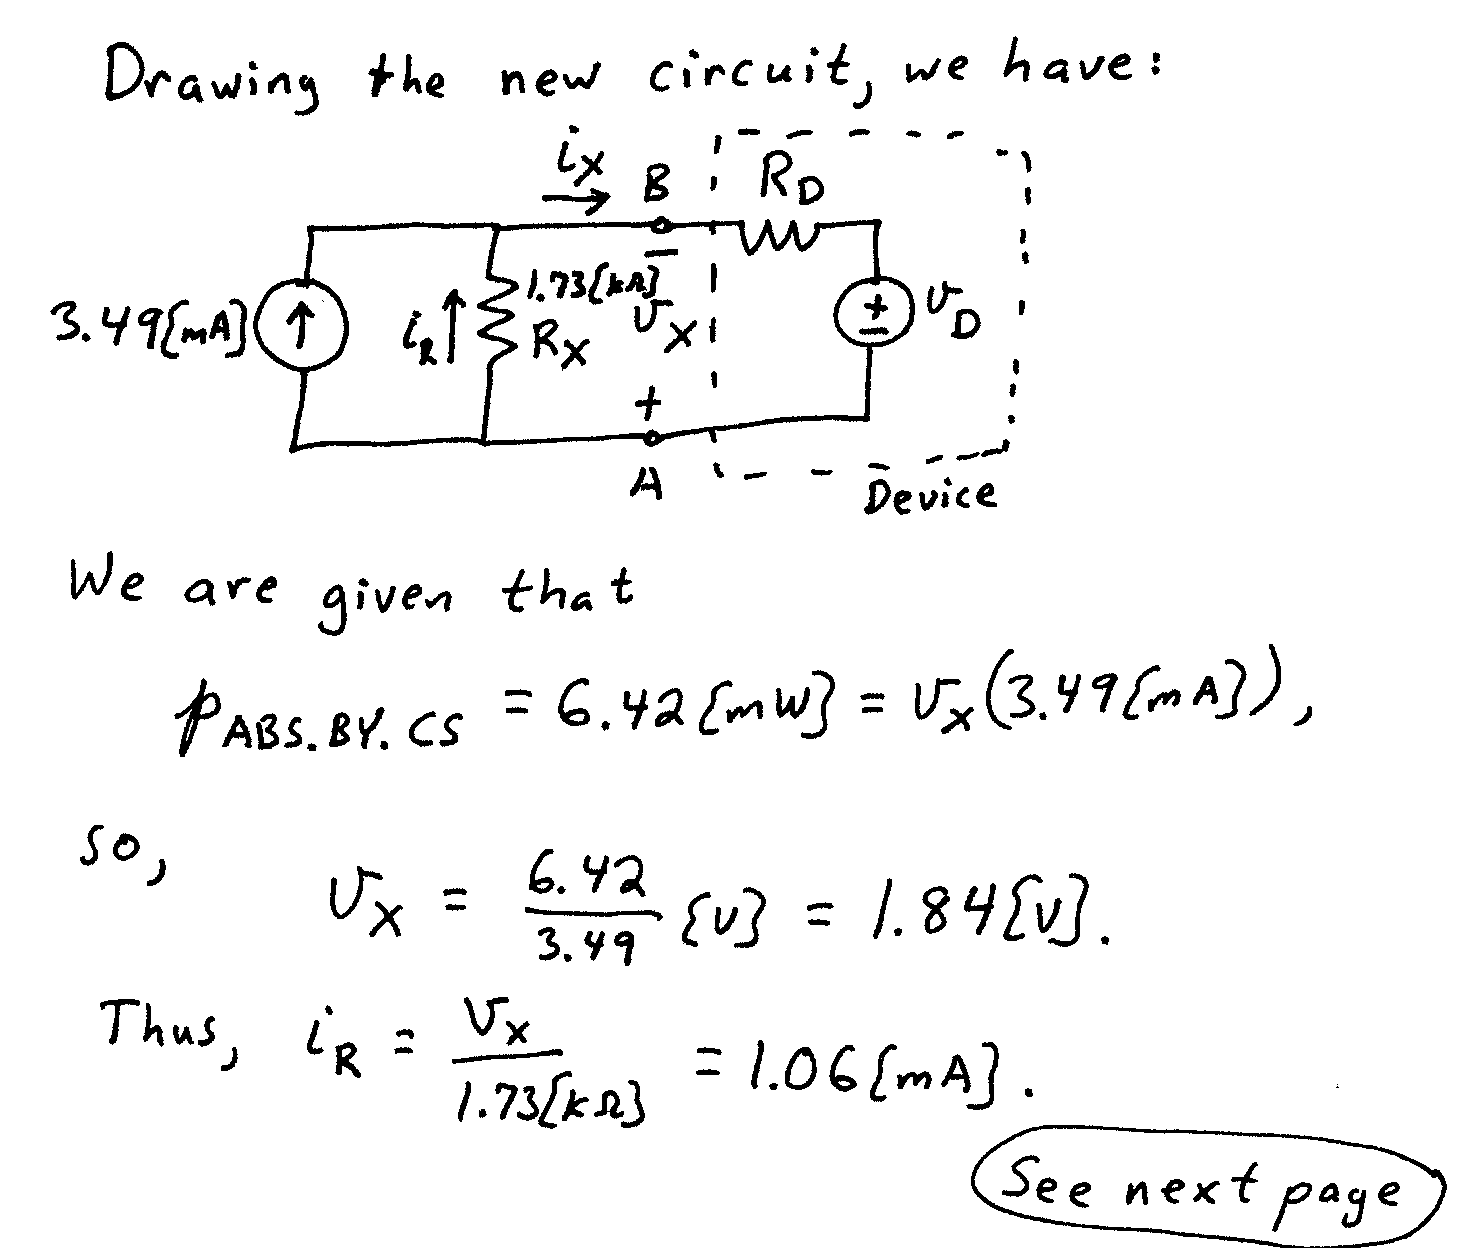 Drawing the new circuit, we have:
iX B RD
3.49[mA] iR 1.73[kΩ] RX
− vX +
+ − vD
A
Device
We are given that
pABS.BY.CS = 6.42[mW] = vX(3.49[mA]),
so,
vX = 6.42/3.49 [V] = 1.84[V].
Thus, iR = vX/1.73[kΩ] = 1.06[mA].
See next page